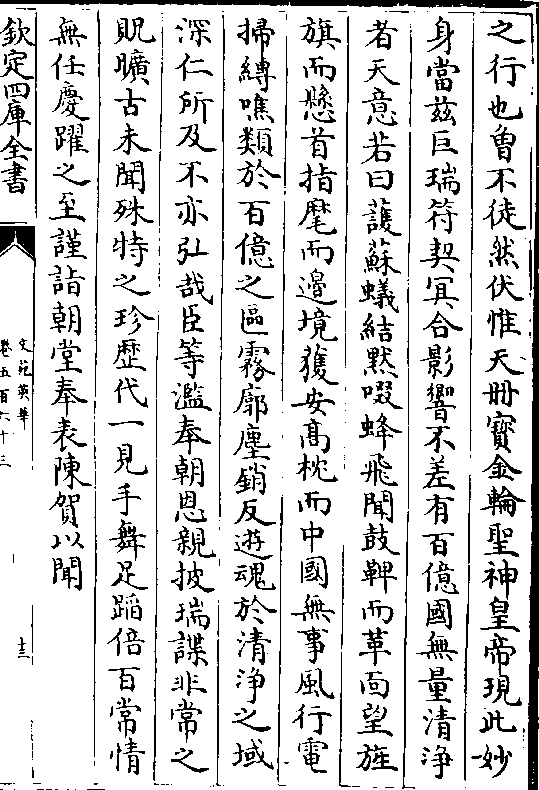 之行也曽不徒然伏惟天冊寳金輪聖神皇帝現此妙
身當兹巨瑞符契冥合影響不差有百億國無量清浄
者天意若曰護蘇蟻結黙啜蜂飛聞鼓鞞而革面望旌
旗而懸首指麾而邉境獲安髙枕而中國無事風行電
掃縳噍類於百億之區霧廓塵銷反遊魂於清浄之域
深仁所及不亦弘哉臣等濫奉朝恩親披瑞諜非常之
貺曠古未聞殊特之珍歴代一見手舞足蹈倍百常情
無任慶躍之至謹詣朝堂奉表陳賀以聞
欽定四庫全書
文苑英華
卷五百六十三
十三